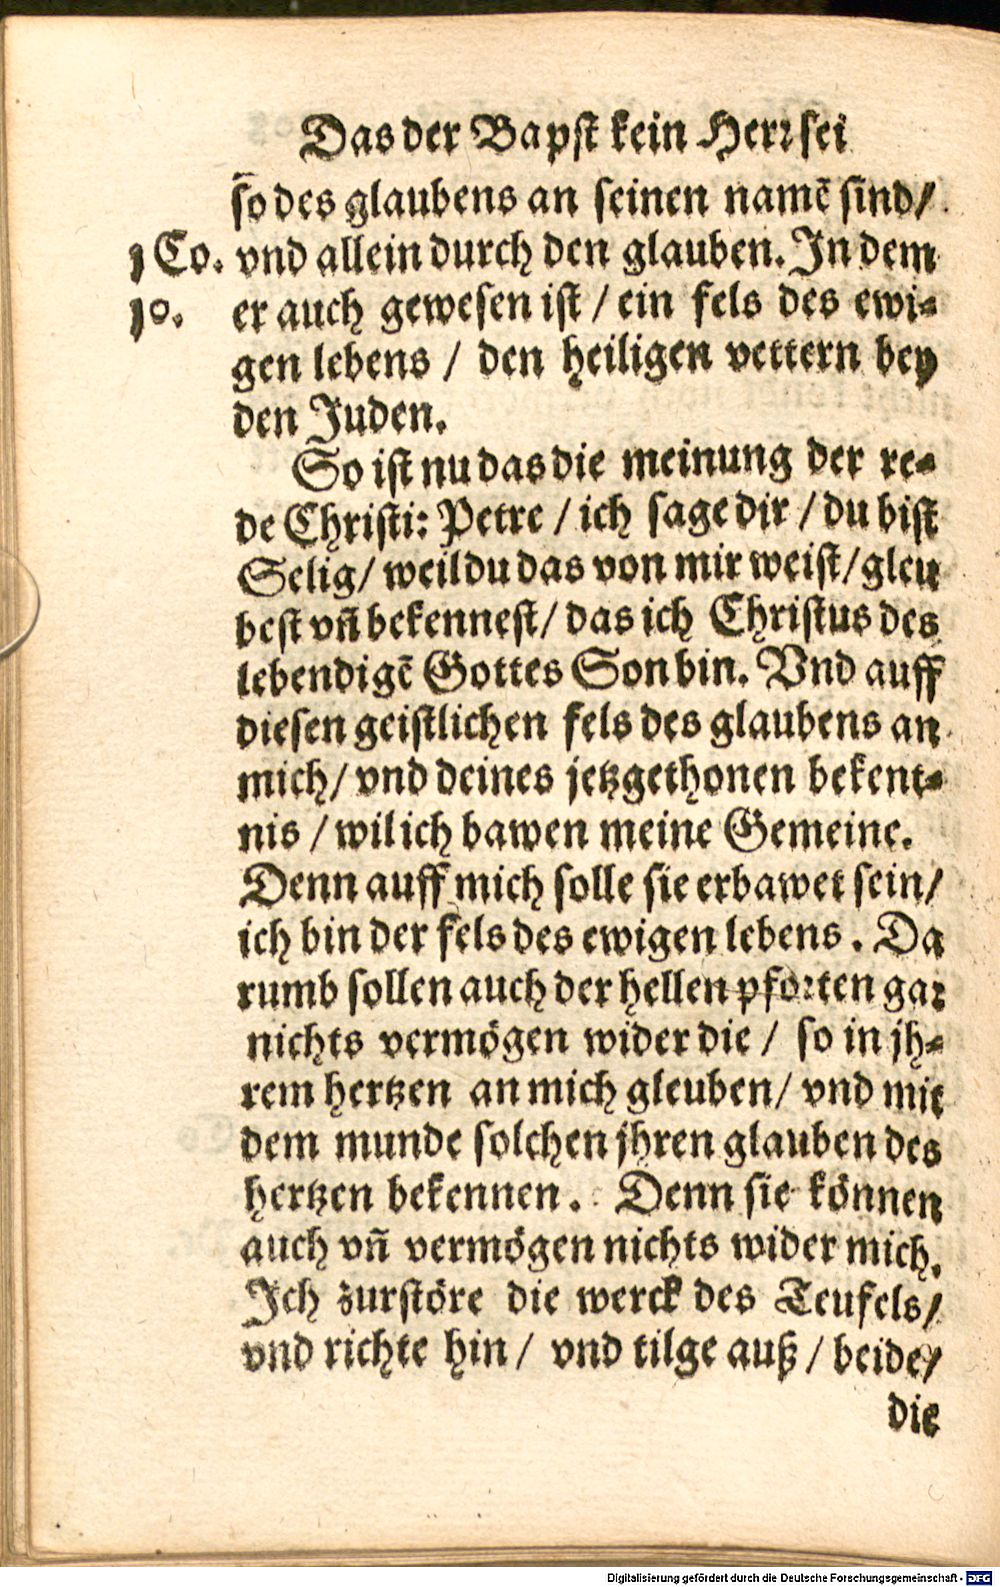 Das der Bapst kein Herr sei
so des glaubens an seinen namē sind/
1 Co. vnd allein durch den glauben. In dem
10. er auch gewesen ist / ein fels des ewi-
gen lebens / den heiligen vettern bey
den Juden.
So ist nu das die meinung der re-
de Christi: Petre / ich sage dir / du bist
Selig/ weil du das von mir weist/ gleu
best vñ bekennest/ das ich Christus des
lebendigē Gottes Son bin. Vnd auff
diesen geistlichen fels des glaubens an
mich/ vnd deines jetzgethonen bekent-
nis / wil ich bawen meine Gemeine.
Denn auff mich solle sie erbawet sein/
ich bin der fels des ewigen lebens. Da
rumb sollen auch der hellen pforten gar
nichts vermögen wider die / so in jh-
rem hertzen an mich gleuben/ vnd mit
dem munde solchen jhren glauben des
hertzen bekennen. Denn sie können
auch vñ vermögen nichts wider mich.
Ich zurstöre die werck des Teufels/
vnd richte hin / vnd tilge auß / beide/
die
Digitalisierung gefördert durch die Deutsche Forschungsgemeinschaft - DFG